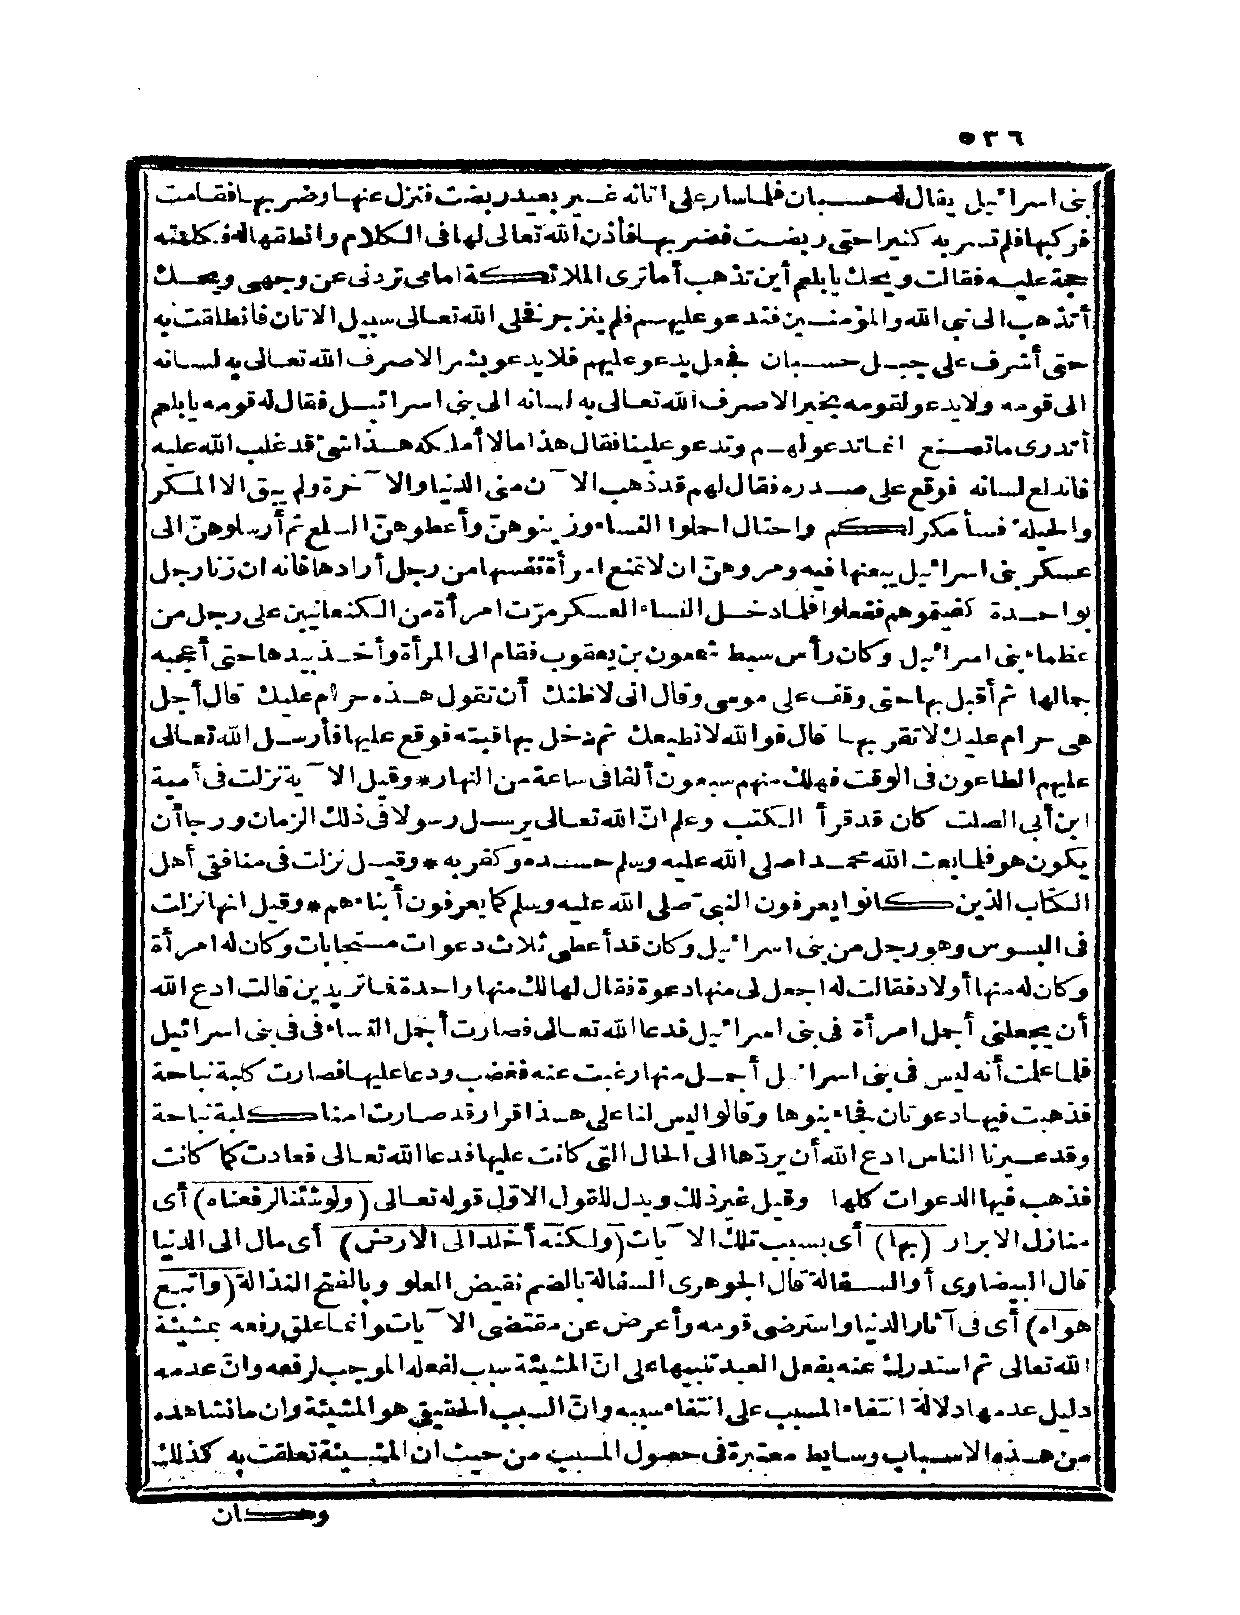 ٥٣٦
بنى اسرائيل يقال له حسبان فلما سار على اتانه غير بعيد ربضت فنزل عنها وضربها فقامت
فركبها فلم تسر به كثيرا حتى ربضت فضربها فأذن الله تعالى لها فى الكلام وانطقها له فكلمته
حجة عليه فقالت ويحك يا بلعم أين تذهب أما ترى الملائكة امامى تردنى عن وجهى ويحك
أتذهب الى نبى الله والمؤمنين فتدعو عليهم فلم ينزجر فخلى الله تعالى سبيل الاتان فانطلقت به
حتى أشرف على جبل حسبان فجعل يدعو عليهم فلا يدعو بشر الاصرف الله تعالى به لسانه
الى قومه ولا يدعو لقومه بخير الاصرف الله تعالى به لسانه الى بنى اسرائيل فقال له قومه يا بلعم
أتدرى ما تصنع انما تدعو لهم وتدعو علينا فقال هذا ما لا أملكه هذا شئ قد غلب الله عليه
فاندلع لسانه فوقع على صدره فقال لهم قد ذهب الآن منى الدنيا والآخرة ولم يبق الا المكر
والحيلة فسأمكر لكم واحتال احملوا النساء وزينوهنّ وأعطوهنّ السلع ثم أرسلوهنّ الى
عسكر بنى اسرائيل يبعنها فيه ومروهنّ ان لا تمنع امرأة نفسها من رجل أرادها فانه ان زنا رجل
بواحدة كفيتموهم ففعلوا فلما دخل النساء العسكر مرّت امرأة من الكنعانيين على رجل من
عظماء بنى اسرائيل وكان رأس سبط شمعون بن يعقوب فقام الى المرأة وأخذ بيدها حتى أعجبه
جمالها ثم أقبل بها حتى وقف على موسى وقال انى لاظنك أن تقول هذه حرام عليك قال أجل
هى حرام عليك لا تقربها قال فوالله لا نطيعك ثم دخل بها قبته فوقع عليها فأرسل الله تعالى
عليهم الطاعون فى الوقت فهلك منهم سبعون ألفا فى ساعة من النهار * وقيل الآية نزلت فى أمية
ابن أبى الصلت كان قد قرأ الكتب وعلم انّ الله تعالى يرسل رسولا فى ذلك الزمان ورجا أن
يكون هو فلما بعث الله محمدا صلى الله عليه وسلم حسده وكفر به * وقيل نزلت فى منافقى أهل
الكتاب الذين كانوا يعرفون النبىّ صلى الله عليه وسلم كما يعرفون أبناءهم * وقيل انها نزلت
فى البسوس وهو رجل من بنى اسرائيل وكان قد أعطى ثلاث دعوات مستجابات وكان له امرأة
وكان له منها أولاد فقالت له اجعل لى منها دعوة فقال لها لك منها واحدة فما تريدين قالت ادع الله
أن يجعلنى أجمل امرأة فى بنى اسرائيل فدعا الله تعالى فصارت أجمل النساء فى فى بنى اسرائيل
فلما علمت أنه ليس فى بنى اسرائيل أجمل منها رغبت عنه فغضب ودعا عليها فصارت كلبة نباحة
فذهبت فيها دعوتان فجاء بنوها وقالوا ليس لنا على هذا قرار قد صارت امنا كلبة نباحة
وقد عيرنا الناس ادع الله أن يردّها الى الحال التى كانت عليها فدعا الله تعالى فعادت كما كانت
فذهب فيها الدعوات كلها وقيل غير ذلك ويدل للقول الاوّل قوله تعالى (ولو شئنا لرفعناه) أى
منازل الابرار (بها) أى بسبب تلك الآيات (ولكنه أخلد الى الارض) أى مال الى الدنيا
قال البيضاوى أو السفالة قال الجوهرى السفالة بالضم نقيض العلو وبالفتح النذالة (واتبع
هواه) أى فى آثار الدنيا واسترضى قومه وأعرض عن مقتضى الآيات وانما علق رفعه بمشيئة
الله تعالى ثم استدرك عنه بفعل العبد تنبيها على انّ المشيئة سبب لفعله الموجب لرفعه وانّ عدمه
دليل عدمها دلالة انتفاء المسبب على انتفاء سببه وانّ السبب الحقيقى هو المشيئة وان ما نشاهده
من هذه الاسباب وسايط معتبرة فى حصول المسبب من حيث ان المشيئة تعلقت به كذلك
وكان